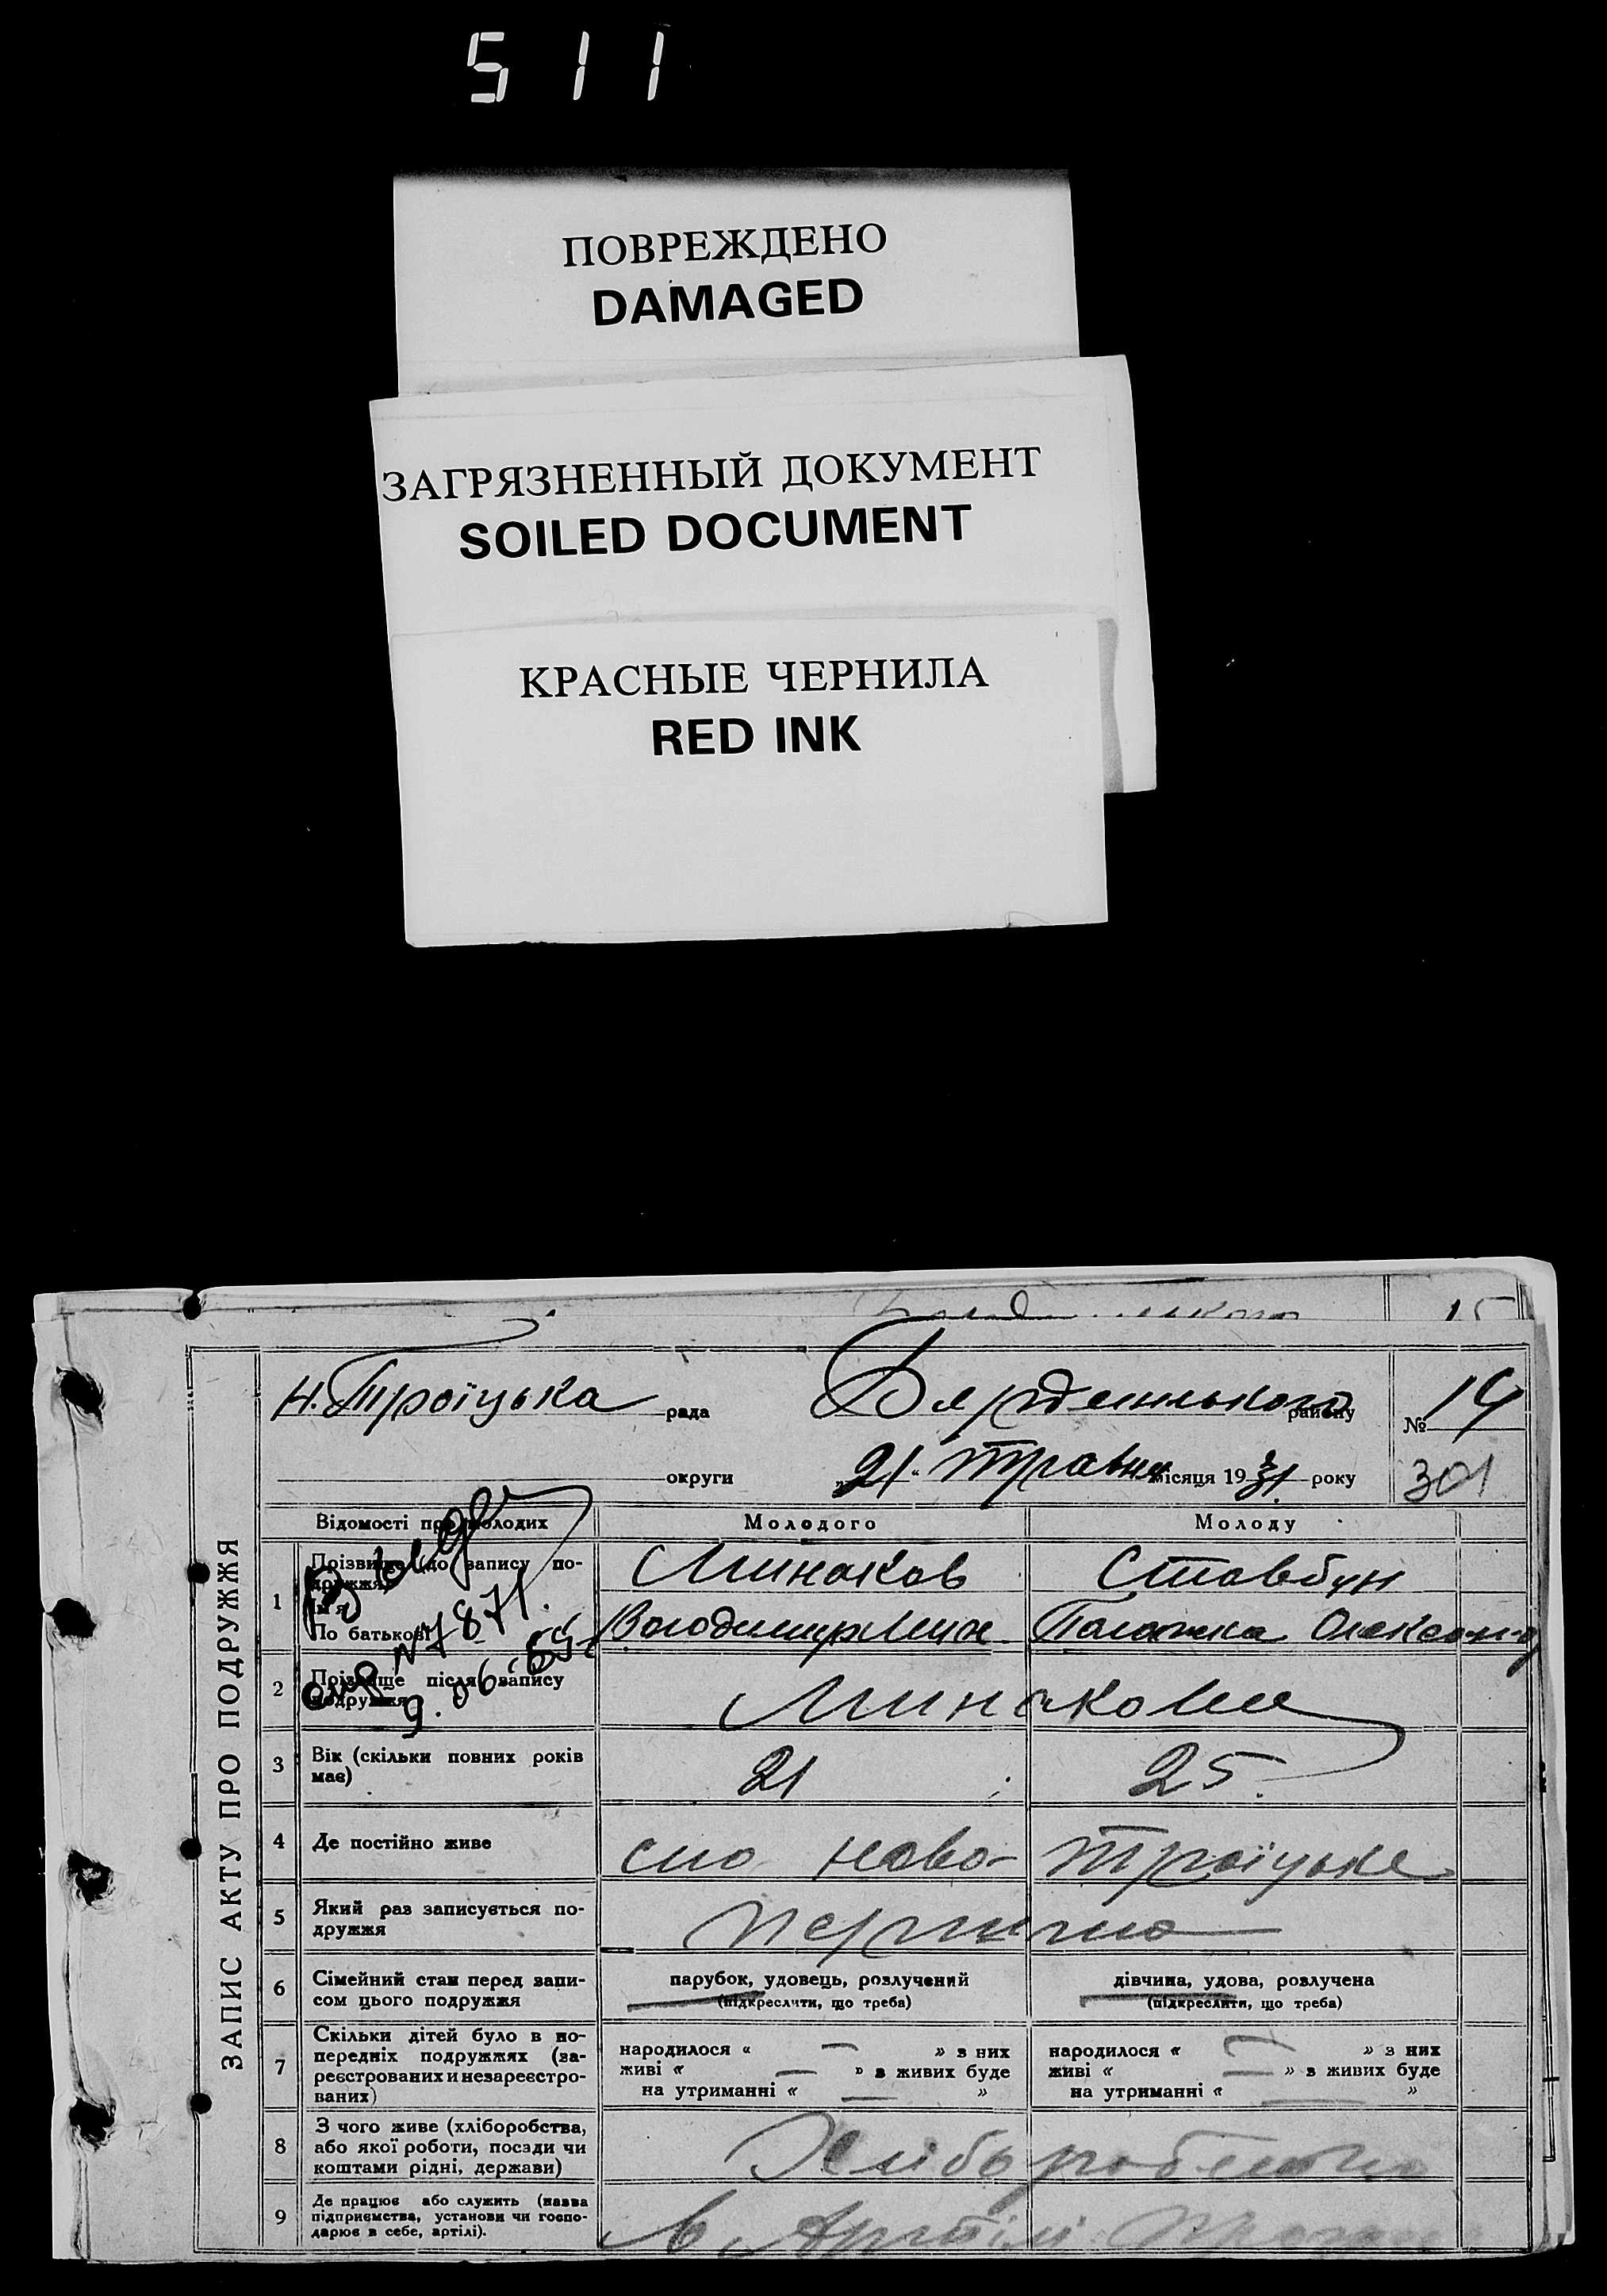 511
ПОВРЕЖДЕНО
DAMAGED
ЗАГРЯЗНЕННЫЙ ДОКУМЕНТ
SOILED DOCUMENT
КРАСНЫЕ ЧЕРНИЛА
RED INK
15
ЗАПИС АКТУ ПРО ПОДРУЖЖЯ
Н. Троїцька рада Бердянського району № 14
округи „21“ травня місяця 1931 року 301
Відомості про молодих Молодого Молоду
1 Прізвище (до запису по-
дружжя) Минаков Ставбун
Ім'я
По батькові Володимир Мих. Палажка Олександ
N 7871.
9.06.65
2 Прізвище після запису
подружжя Минакови
3 Вік (скільки повних років
має) 21 25.
4 Де постійно живе село Ново-Троїцьке
5 Який раз записується по-
дружжя перший
6 Сімейний стан перед запи-
сом цього подружжя парубок, удовець, розлучений дівчина, удова, розлучена
(підкреслити, що треба) (підкреслити, що треба)
7 Скільки дітей було в по-
передніх подружжях (за-
реєстрованих и незареєстро-
ваних)
народилося « — » з них народилося « — » з них
живі « — » з живих буде живі « — » з живих буде
на утриманні « — » на утриманні « — »
8 З чого живе (хліборобства,
або якої роботи, посади чи
коштами рідні, держави) Хліборобство
9 Де працює або служить (назва
підприємства, установи чи госпо-
дарює в себе, артілі). в Артілі